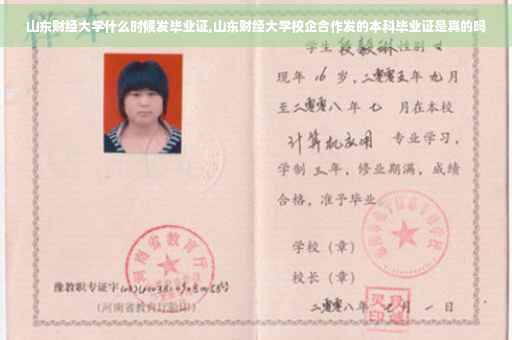 山东财经大学什么时候发毕业证,山东财经大学校企合作发的本科毕业证是真的吗
学生 性别 女
现年 16 岁,二零零五年 九月
至二零零八年 七 月在本校
计算机应用 专业学习,
学制 三年,修业期满,成绩
合格,准予毕业
学校(章)
校长(章)
二零零八年 七月 一日
河南省教育厅
豫教职专证字
(河南省教育厅验印)